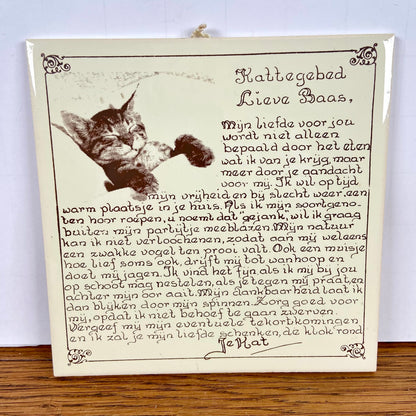 Kattegebed
Lieve Baas,
Mijn liefde voor jou
wordt niet alleen
bepaald door het eten
wat ik van je krijg, maar
meer door je aandacht
voor mij. Ik wil op tijd
mijn vrijheid en bij slecht weer een
warm plaatsje in je huis. Als ik mijn soortgeno-
ten hoor roepen, u noemt dat "gejank", wil ik graag
buiten mijn partijtje meeblazen. Mijn natuur
kan ik niet verloochenen, zodat aan mij weleens
een zwakke vogel ten prooi valt. Ook een muisje
hoe lief soms ook, drijft mij tot wanhoop en
doet mij jagen. Ik vind het fijn als ik mij bij jou
op schoot mag nestelen, als je tegen mij praat, en
achter mijn oor aait. Mijn dankbaarheid laat ik
dan blijken door mijn spinnen. Zorg goed voor
mij, opdat ik niet behoef te gaan zwerven.
Vergeef mij mijn eventuele tekortkomingen
en ik zal je mijn liefde schenken, de klok rond
Je Kat